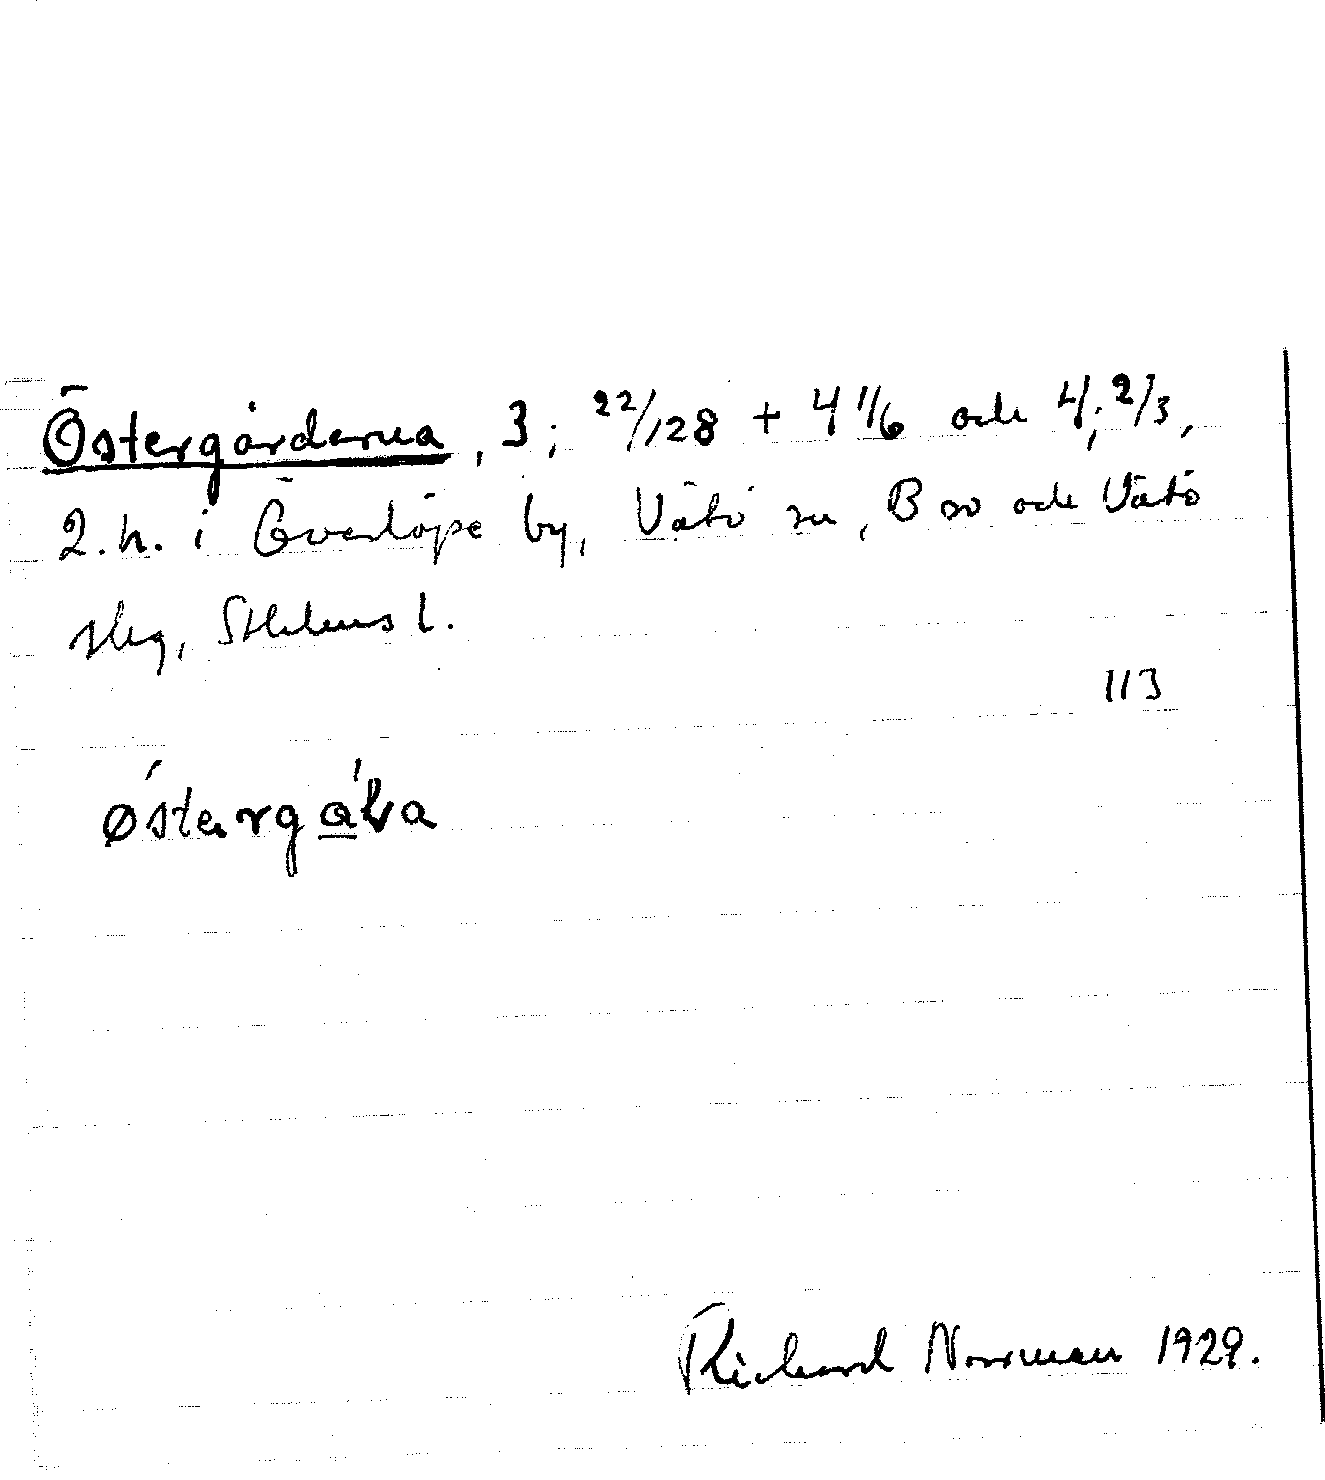 Östergårdarna, 3; 22/128 + 4 1/6 och 4; 2/3,
2. h. i Överlöpe by, Vätö sn, B so och Vätö
slg, Sthlms l.
113
østergáɽa
Richard Norrman 1929.